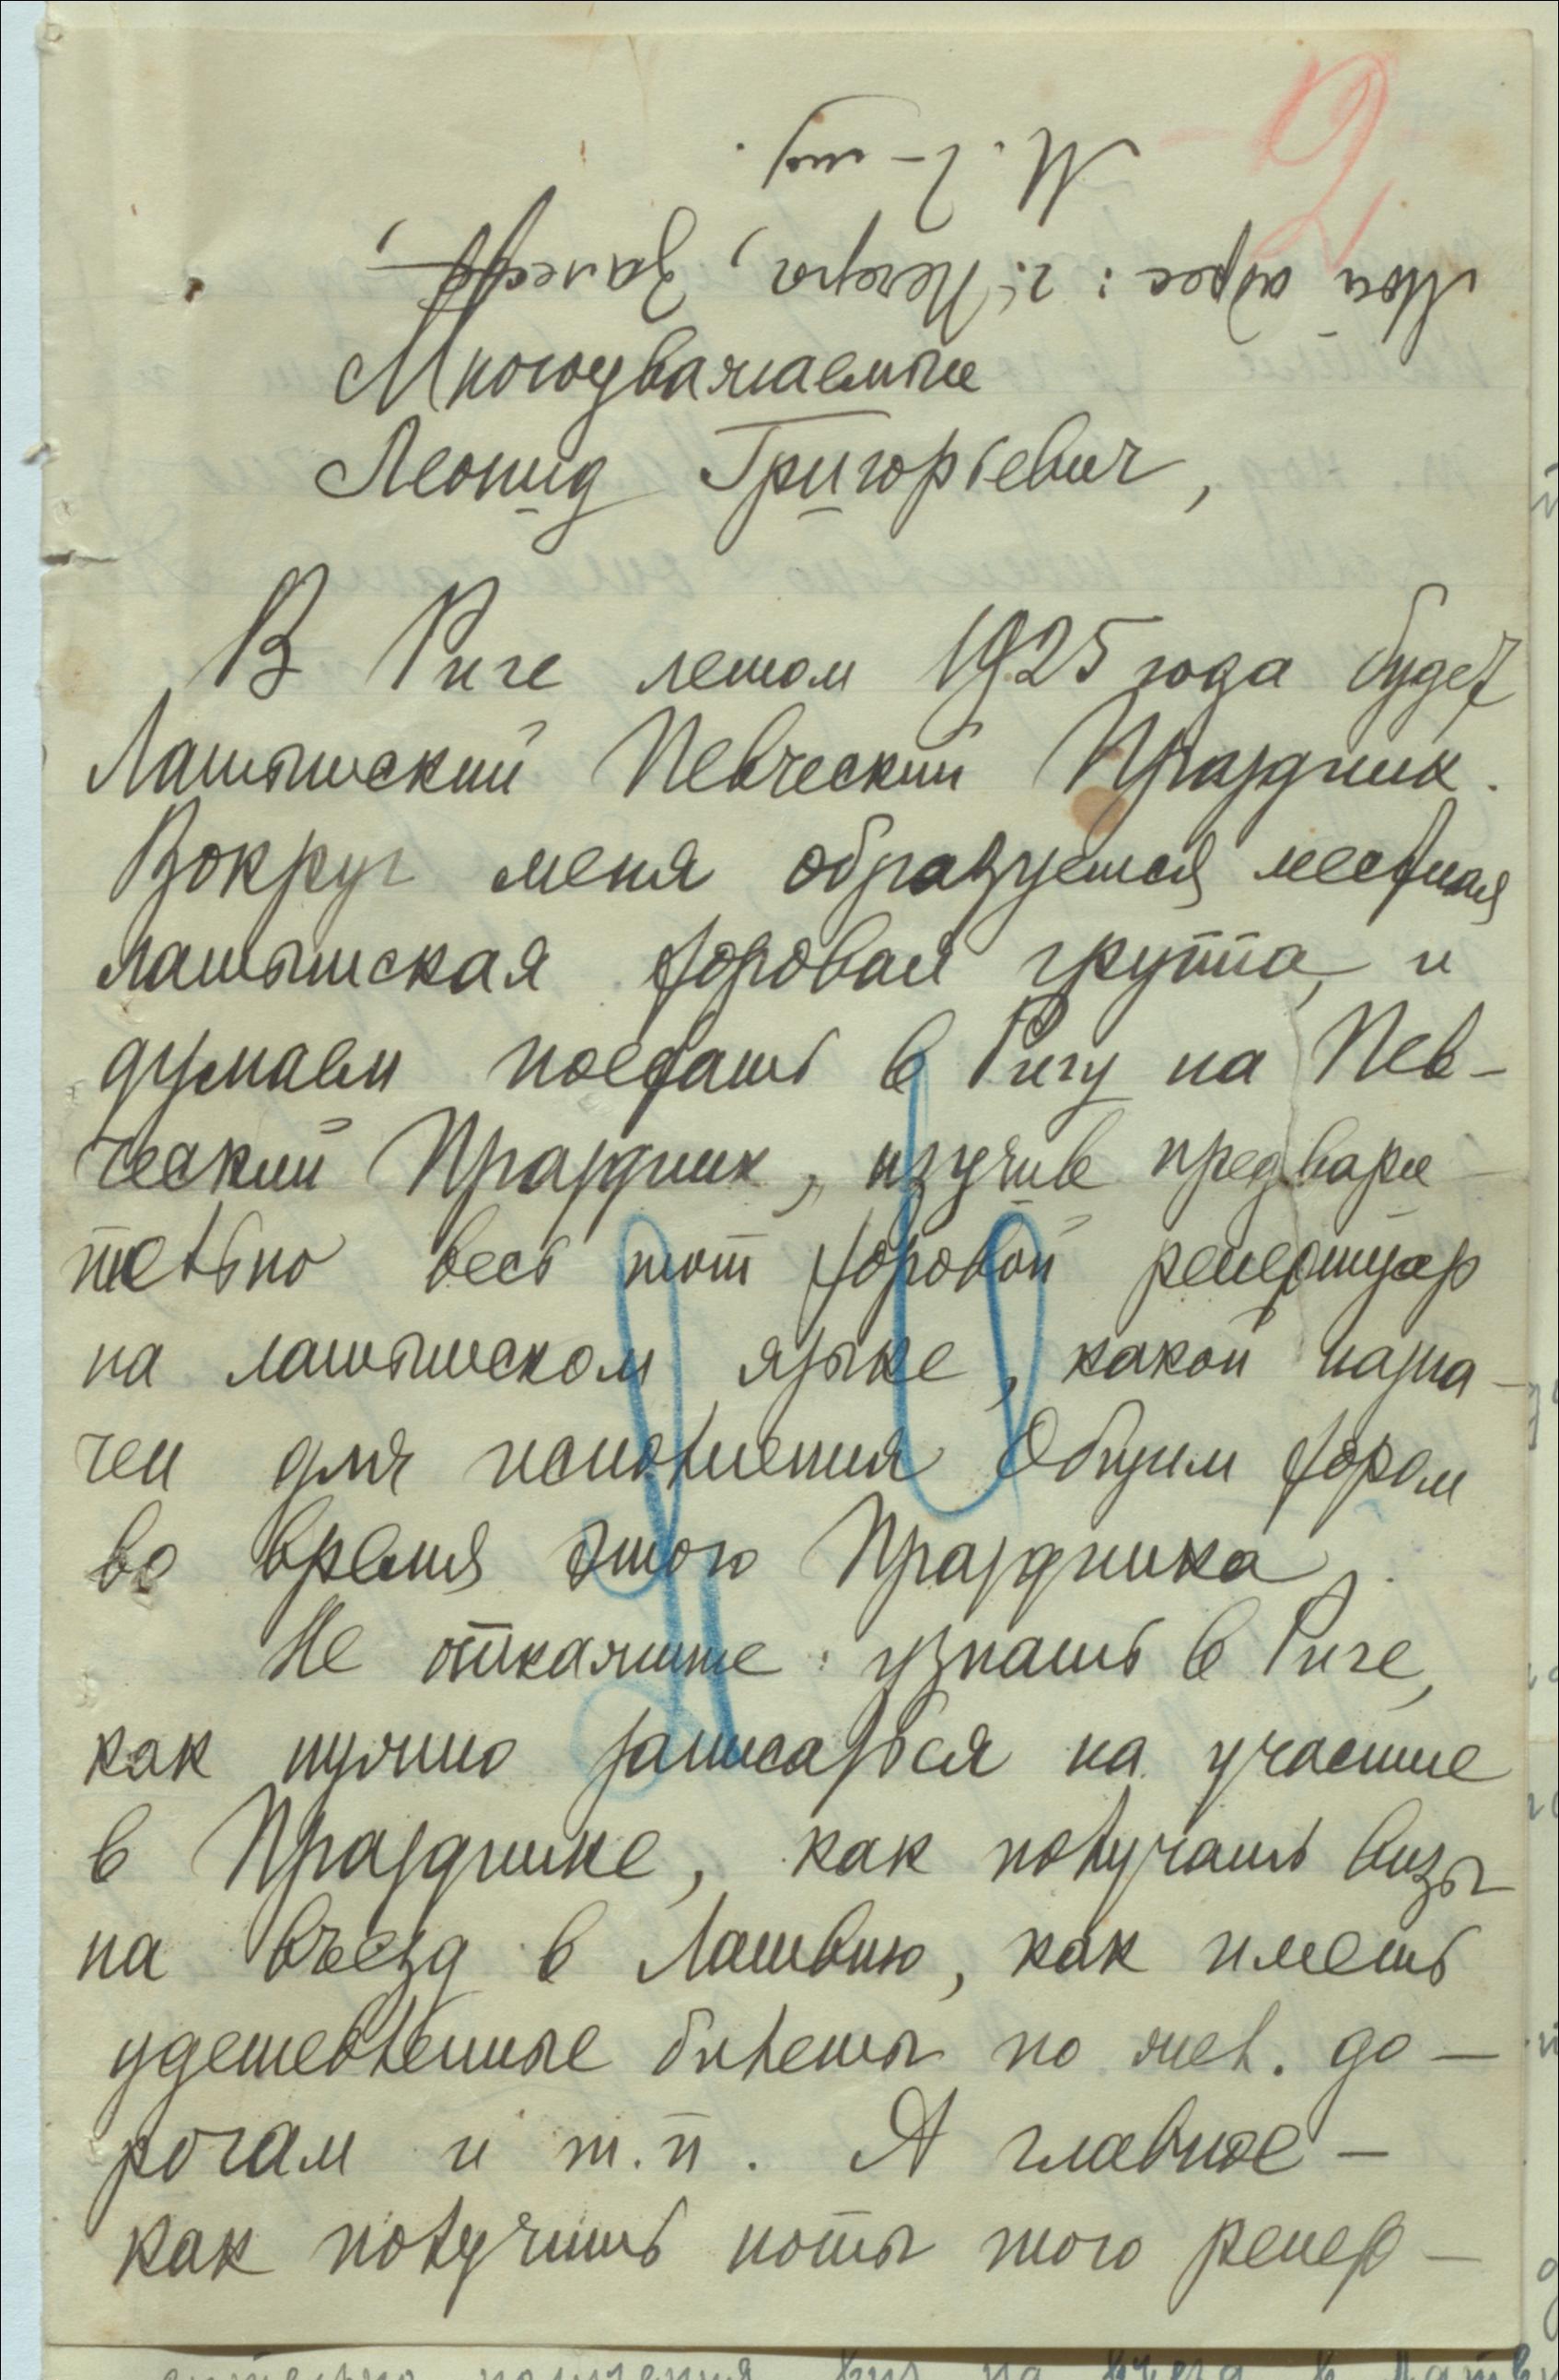 Мой адрес: г. Печера, Залесс,
М. Г-ту.
Многоуважаемый
Леонид Григорьевич,
В Риге летом 1925 года будет
Латышский Певческий Праздник.
Вокруг меня образуется местная
латышская хоровая группа, и
думаем поехать в Ригу на Пев-
ческий Праздник, изучив предвари-
тельно весь тот хоровой репертуар
на латышском языке, какой назна-
чен для исполнения Общим хором
во время этого Праздника.
Не откажите узнать в Риге,
как нужно записаться на участие
в Празднике, как получать визы
на въезд в Латвию, как иметь
удешевленные билеты по жел. до-
рогам и т.п. А главное -
как получить ноты того репер-